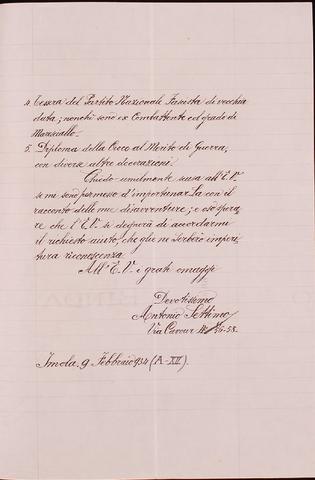 4. Tessera del Partito Nazionale Fascista di vecchia
data; nonchè sono ex Combattente col grado di
Maresciallo.
5. Diploma della Croce al Merito di Guerra,
con diverse altre decorazioni.
Chiedo umilmente scusa all'E.V.
se mi sono permesso d'importunarLa con il
racconto delle mie disavventure; e oso spera,
re che l'E.V. si degnerà di accordarmi
il richiesto aiuto, che gliene serberò imperi,
tura riconoscenza.
All'E.V. i grati omaggi
Devotissimo
Antonio Settimo
Via Cavour 56-58.
Imola, 9 Febbraio 934 (A-XII).